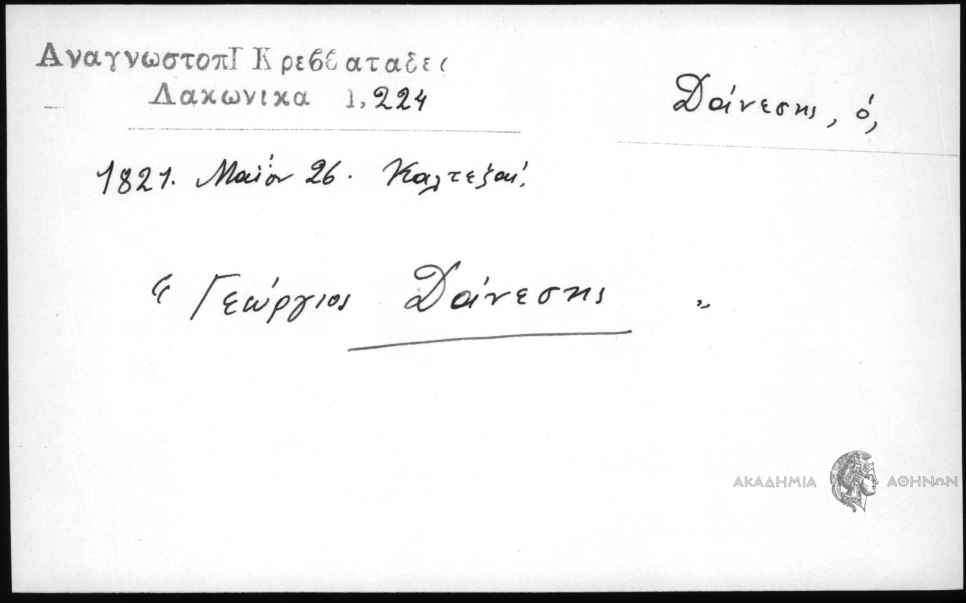 ΑναγνωστοπΓ Κρεββαταδες
Λακωνικα 1, 224
Δάνεσης, ὁ,
1821. Μαΐου 26. Καλτεζαί.
“ Γεώργιος Δάνεσης „
ΑΚΑΔΗΜΙΑ ΑΘΗΝΩΝ